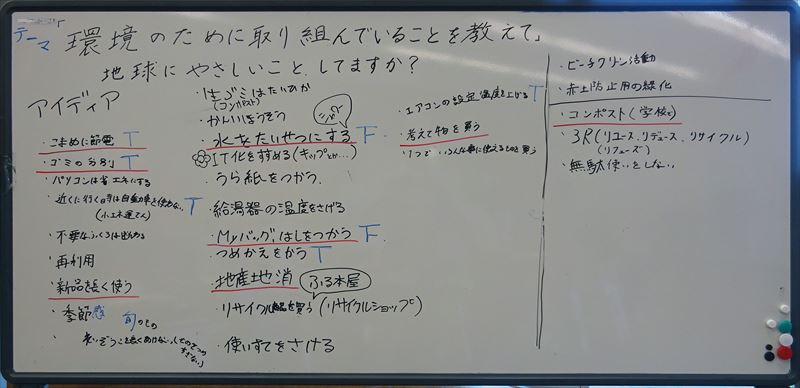 テーマ「環境のために取り組んでいることを教えて」
地球にやさしいこと、してますか？
アイディア
・こまめに節電 T
・ゴミの分別 T
・パソコンは省エネにする
・近くに行く時は自動車を使わない T
(小エネ運てん)
・不要な
・再利用
・新品を長く使う
・季節感
旬のもの
・生ゴミはたいひか
(コンポスト)
・かんいほうそう
・水をたいせつにする T F
IT化をすすめる(キップとか…)
・うら紙をつかう
・給湯器の温度をさげる
・Myバッグ、はしをつかう F
・つめかえをかう T
・地産地消
ふる本屋
・リサイクル品を買う(リサイクルショップ)
・使いすてをさける
・エアコンの設定温度を上げる T
・考えて物を買う
・1つでいろんな事に使えるものを買う
・ビーチクリン活動
・赤土防止用の緑化
・コンポスト(学校で)
・3R(リユース、リデュース、リサイクル)
(リフューズ)
・無駄使いをしない